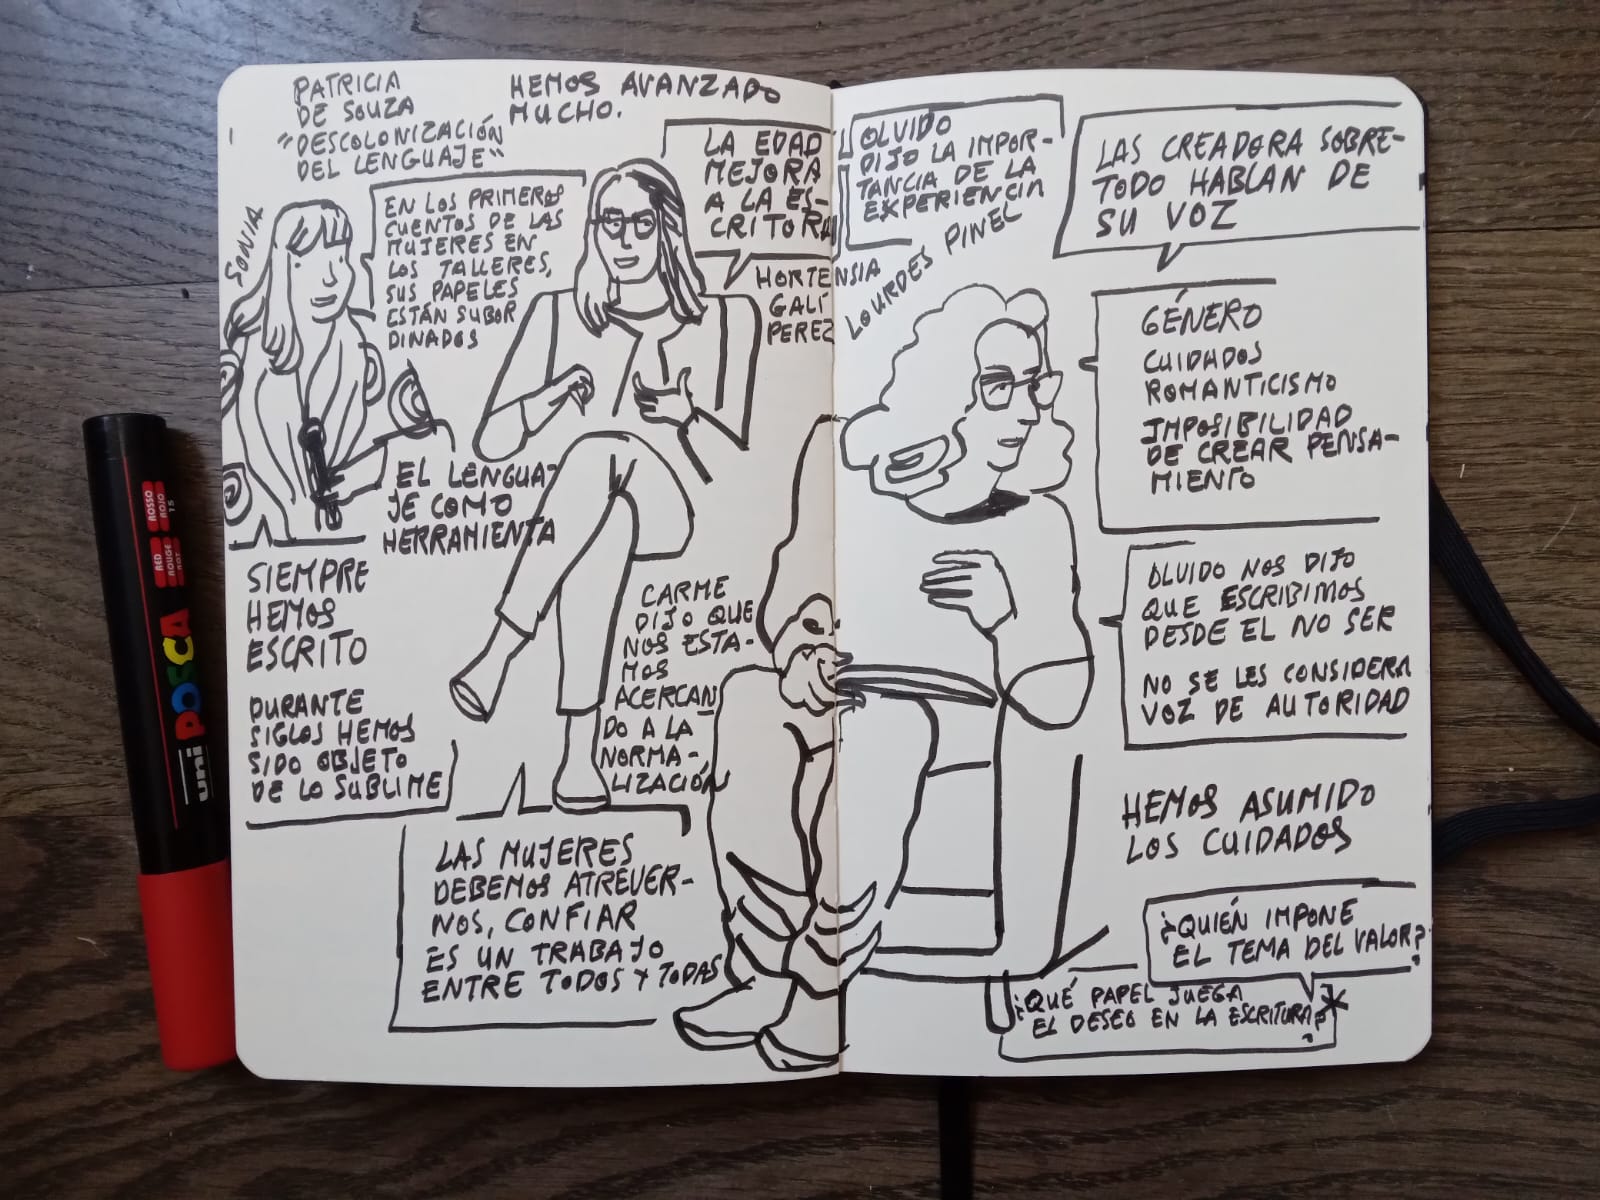 PATRICIA
DE SOUZA
"DESCOLONIZACIÓN
DEL LENGUAJE"
HEMOS AVANZADO
MUCHO.
SONIA
EN LOS PRIMEROS
CUENTOS DE LAS
MUJERES EN
LOS TALLERES,
SUS PAPELES
ESTÁN SUBOR
DINADOS
LA EDAD
MEJORA
A LA ES-
CRITORA
HORTENSIA
GALÍ
PEREZ
EL LENGUA-
JE COMO
HERRAMIENTA
SIEMPRE
HEMOS
ESCRITO
DURANTE
SIGLOS HEMOS
SIDO OBJETO
DE LO SUBLIME
CARME
DIJO QUE
NOS ESTA-
MOS
ACERCAN
DO A LA
NORMA-
LIZACIÓN
LAS MUJERES
DEBEMOS ATREVER-
NOS, CONFIAR
ES UN TRABAJO
ENTRE TODOS Y TODAS
OLVIDO
DIJO LA IMPOR-
TANCIA DE LA
EXPERIENCIA
LOURDES PINEL
LAS CREADORA SOBRE-
TODO HABLAN DE
SU VOZ
GÉNERO
CUIDADOS
ROMANTICISMO
IMPOSIBILIDAD
DE CREAR PENSA-
MIENTO
OLVIDO NOS DIJO
QUE ESCRIBIMOS
DESDE EL NO SER
NO SE LES CONSIDERA
VOZ DE AUTORIDAD
HEMOS ASUMIDO
LOS CUIDADOS
¿QUIÉN IMPONE
EL TEMA DEL VALOR?
¿QUÉ PAPEL JUEGA
EL DESEO EN LA ESCRITURA?
uni POSCA
RED
ROUGE
ROT
ROSSO
ROJO
15